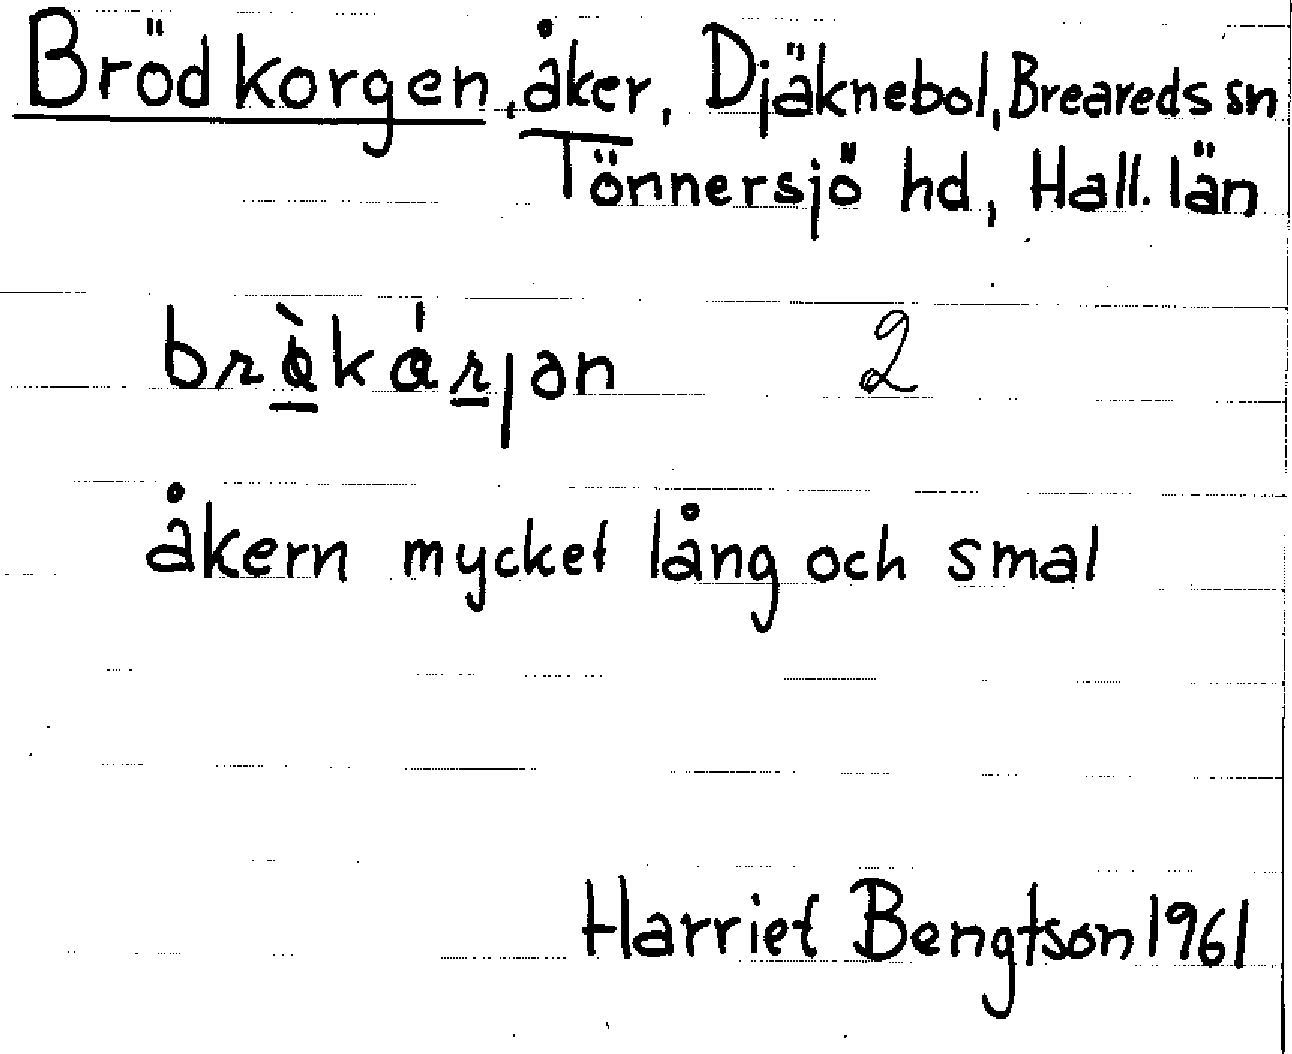 Brödkorgen, åker, Djäknebol, Breareds sn
Tönnersjö hd, Hall. län
2
åkern mycket lång och smal
Harriet Bengtson 1961